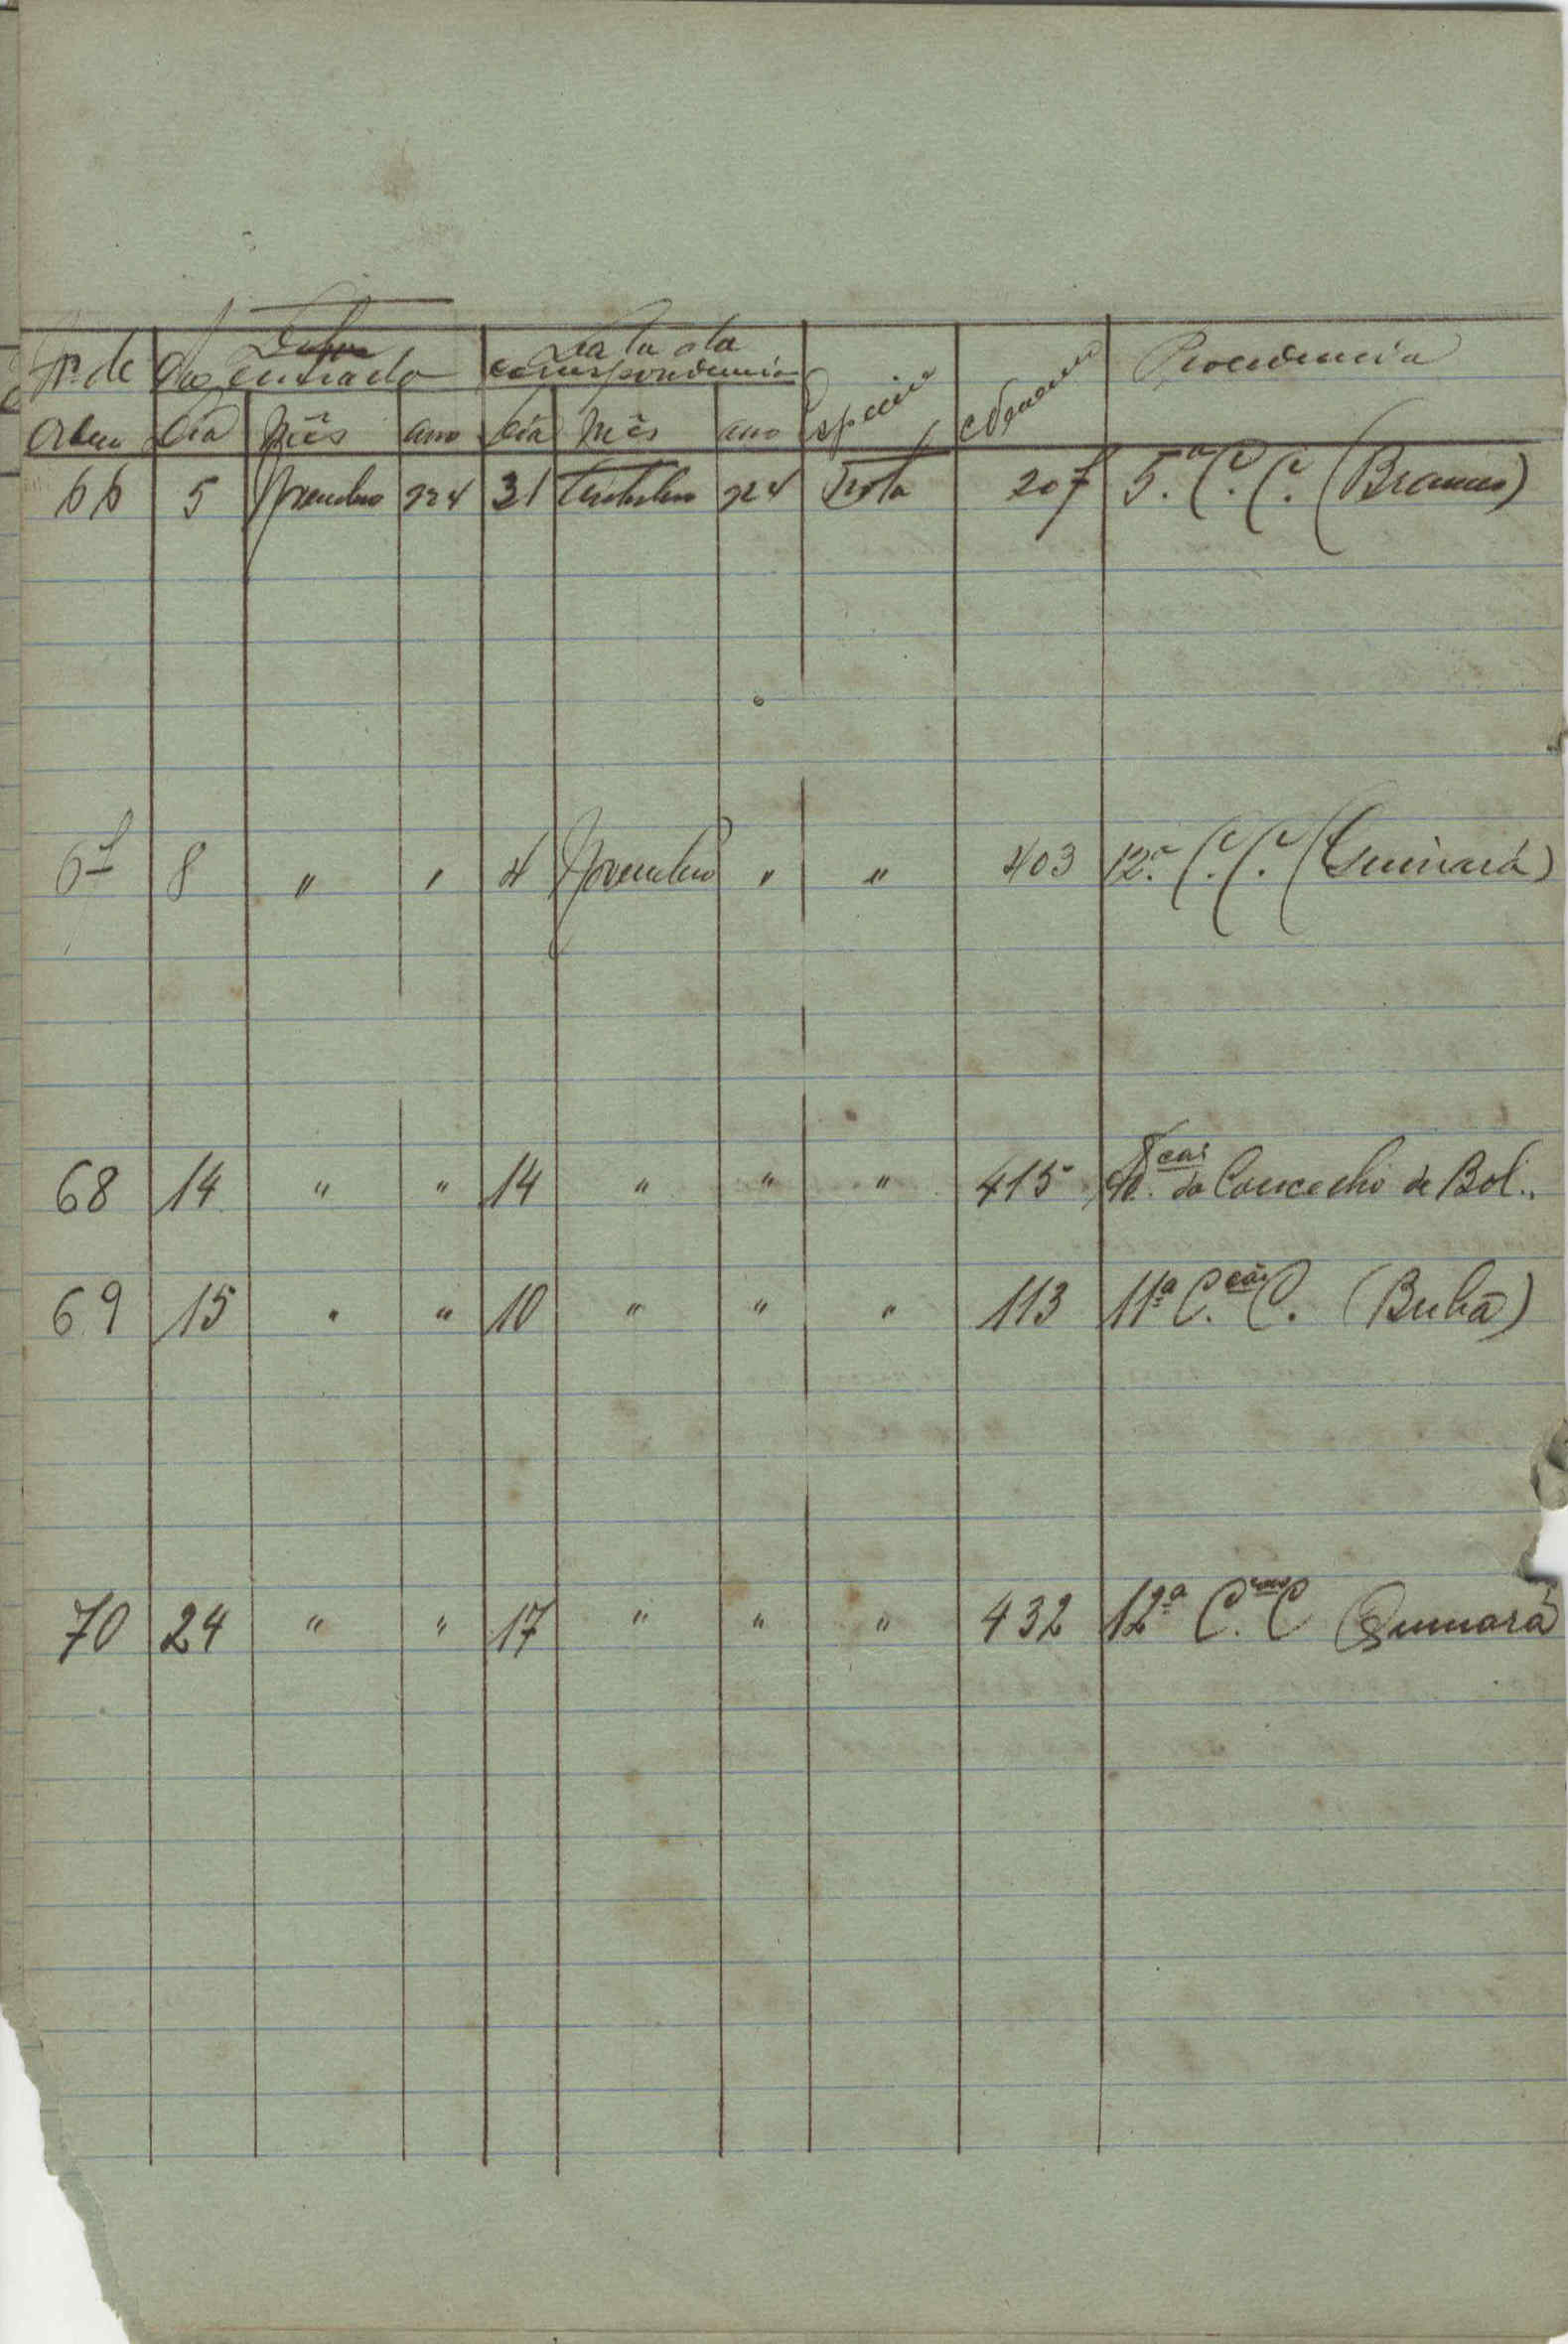 Nº de Data da Data da Procedencia
da entrada correspondencia Especie Numero
Ordem Dia Mês ano Dia Mês ano
66 5 Novembro 924 31 Outubro 924 Nota 207 5.ª C. C. (Brames)
67 8 " " 4 Novembro " " 403 12.ª C. C. (Quinará)
68 14 " " 14 " " " 415 do Concelho de Bol..
69 15 " " 10 " " " 113 11ª C. C. (Bubá)
70 24 " " 17 " " " 432 12ª C. C (Quinará